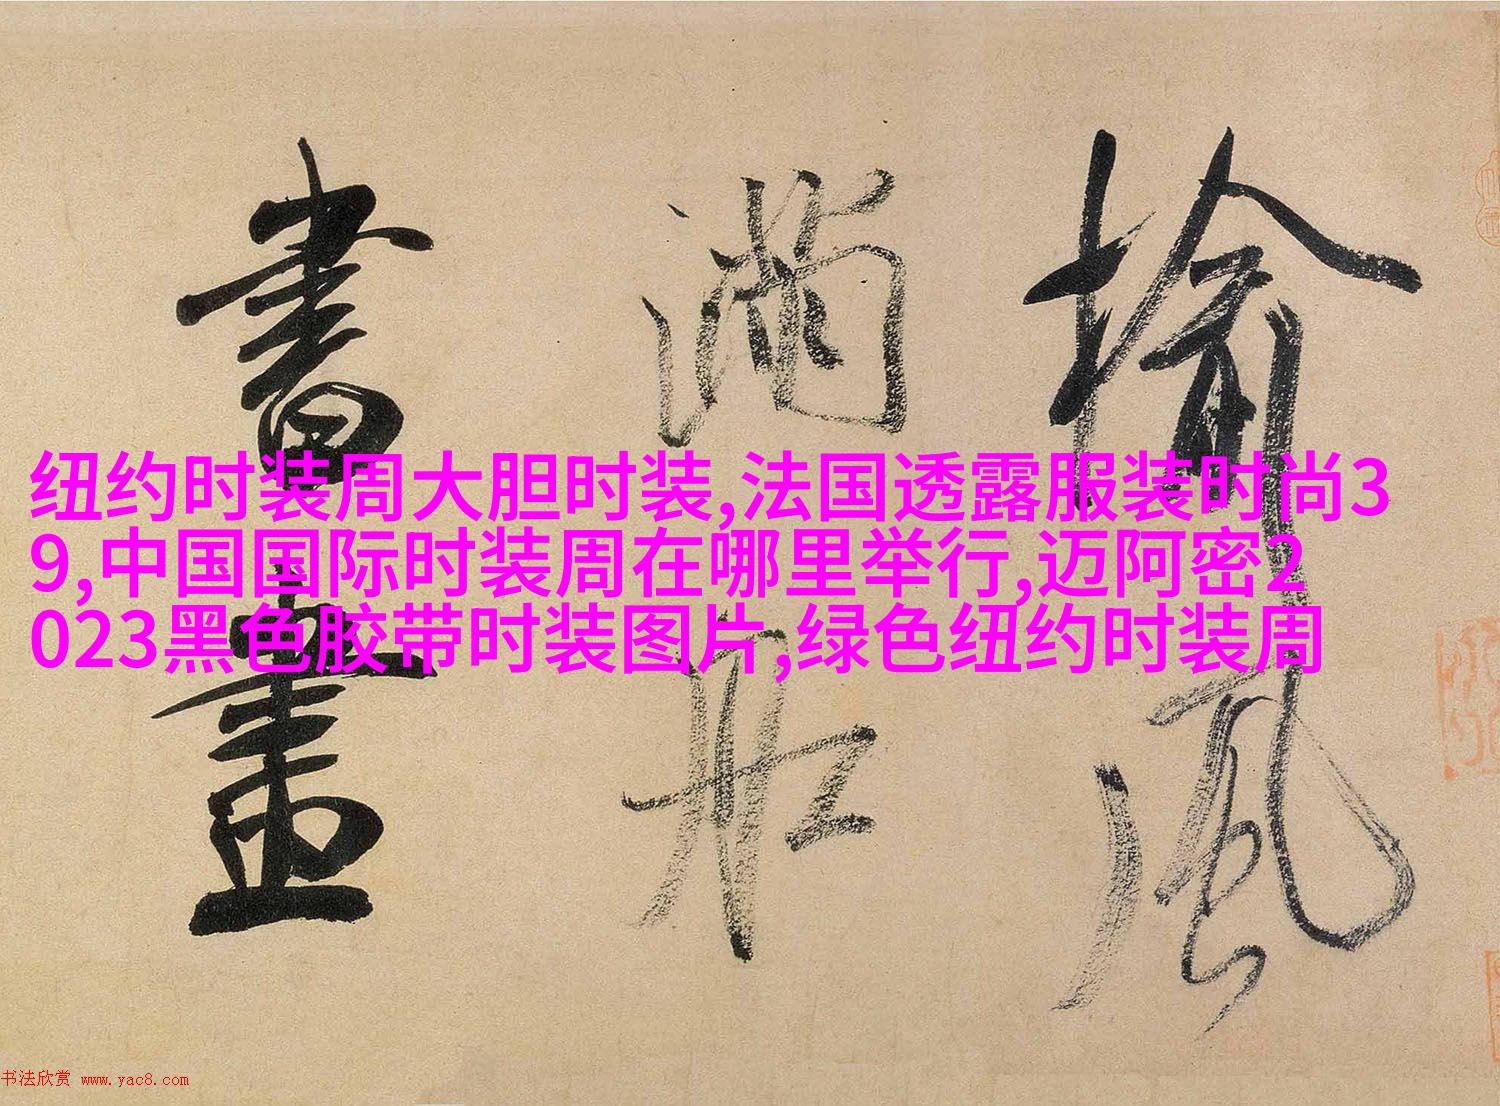 榆風
滿舡
書畫
纽约时装周大胆时装,法国透露服装时尚3
9,中国国际时装周在哪里举行,迈阿密2
023黑色胶带时装图片,绿色纽约时装周
书法欣赏 www.yac8.com